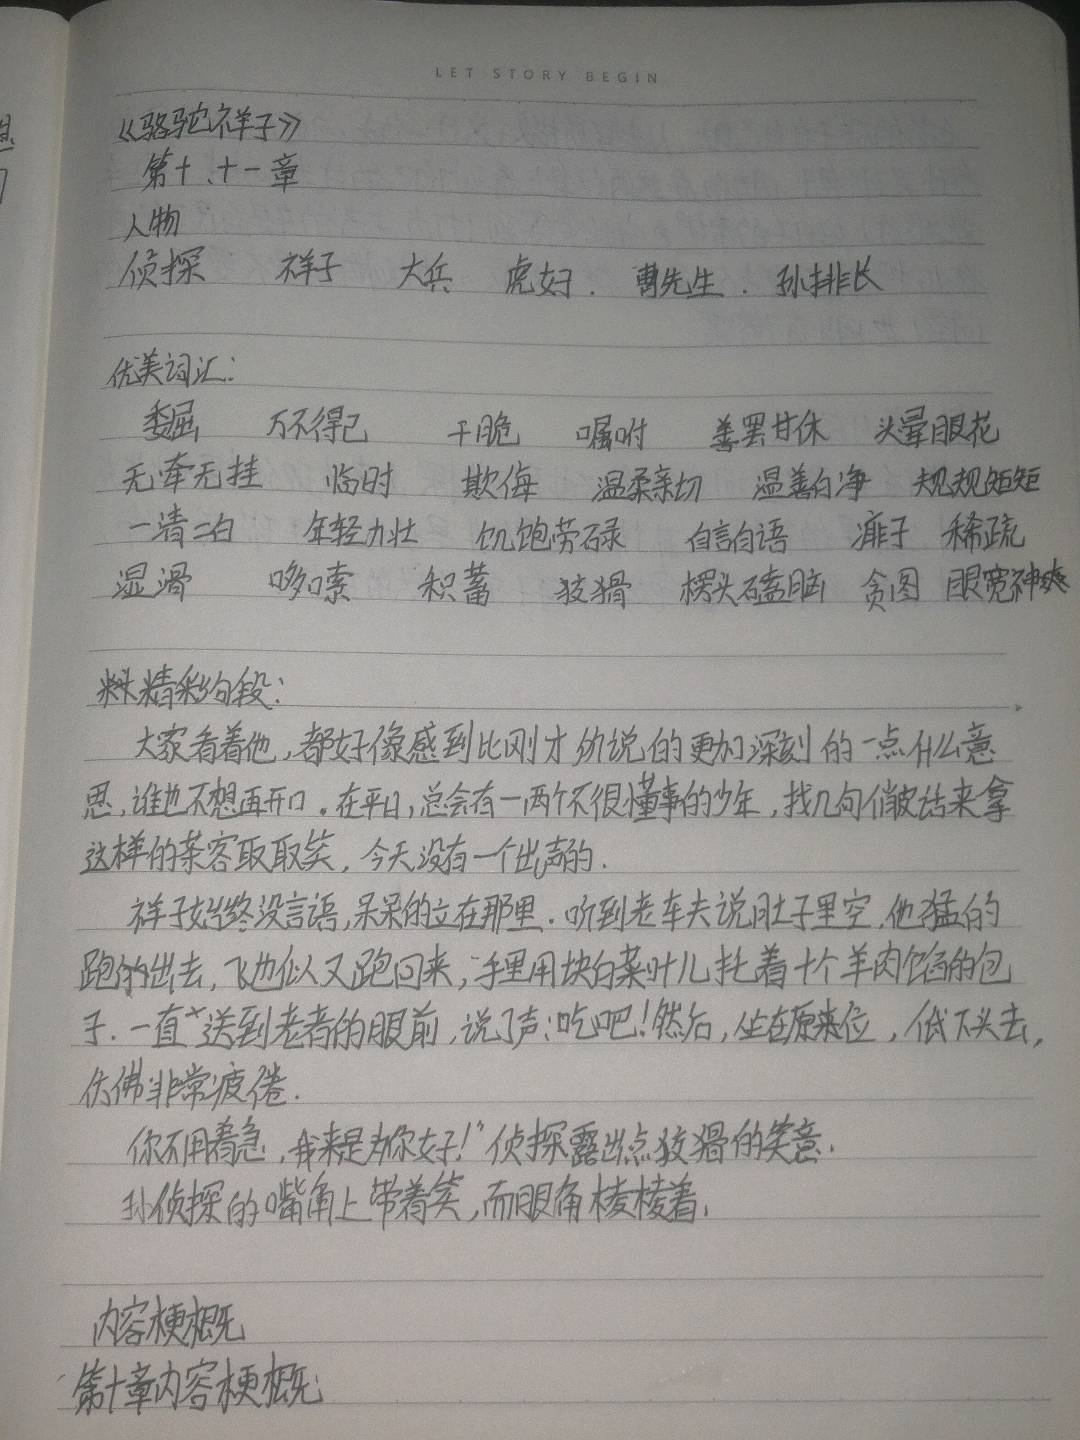 LET STORY BEGIN
《骆驼祥子》
第十、十一章
人物
侦探 祥子 大兵 虎妞. 曹先生. 孙排长
优美词汇:
委屈 万不得已 干脆 嘱咐 善罢甘休 头晕眼花
无牵无挂 临时 欺侮 温柔亲切 温善白净 规规矩矩
一清二白 年轻力壮 饥饱劳碌 自言自语 痱子 稀疏
湿滑 哆嗦 积蓄 狡猾 楞头磕脑 贪图 眼宽神爽
精彩句段:
大家看着他,都好像感到比刚才所说的更加深刻的一点什么意
思,谁也不想再开口.在平日,总会有一两个不很懂事的少年,找几句俏皮话来拿
这样的茶客取取笑,今天没有一个出声的.
祥子始终没言语,呆呆的立在那里.听到老车夫说肚子里空,他猛的
跑的出去,飞也似又跑回来,手里用块白菜叶儿托着十个羊肉馅的包
子.一直送到老者的眼前,说了声:吃吧!然后,坐在原来位,低下头去,
仿佛非常疲倦.
你不用着急,我来是为你好!”侦探露出点狡猾的笑意.
孙侦探的嘴角上带着笑,而眼角棱棱着.
内容梗概
第十章内容梗概: